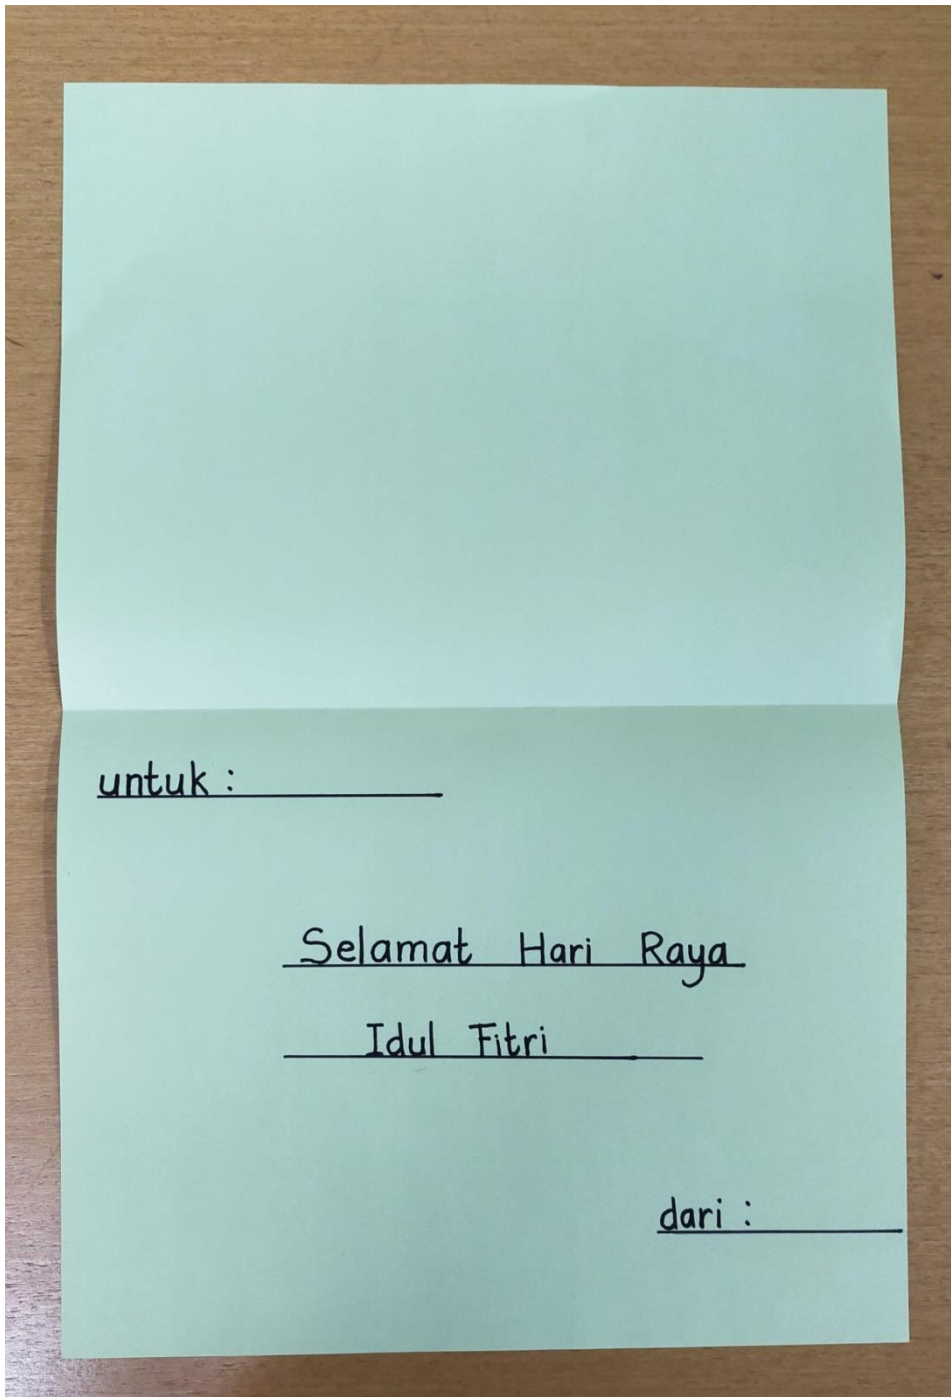 untuk :
Selamat Hari Raya
Idul Fitri
dari :